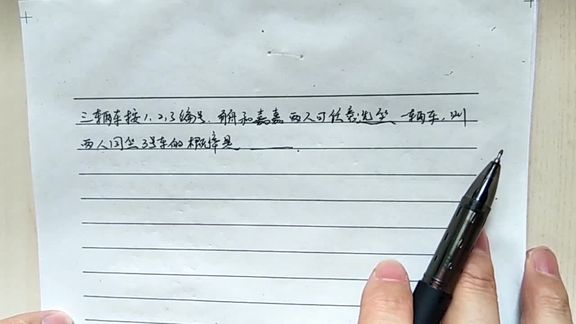 三辆车按1,2,3编号,舟舟和嘉嘉两人可任意选坐一辆车,则
两人同坐3号车的概率是______.